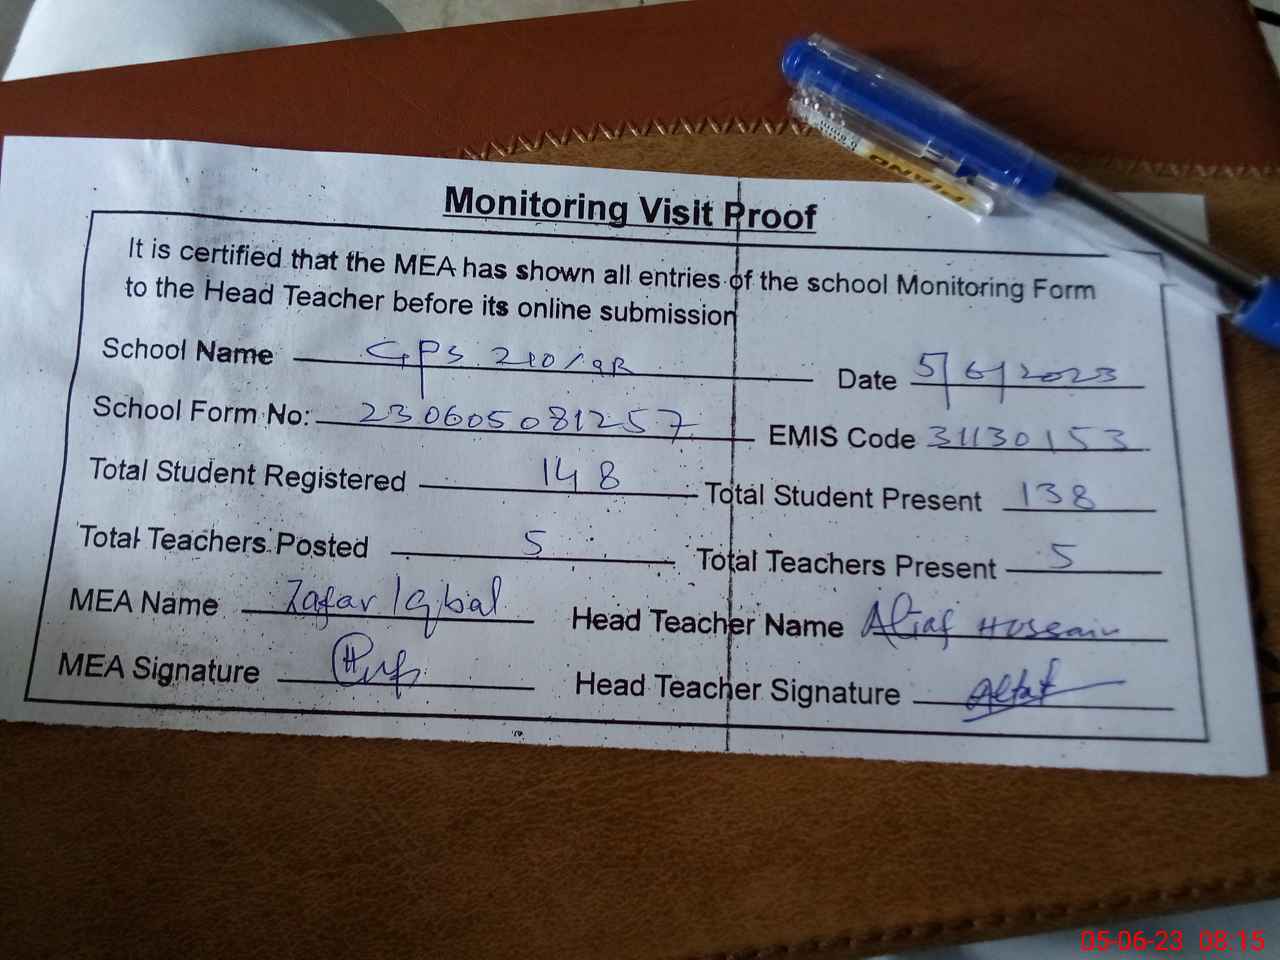 Monitoring Visit Proof
It is certified that the MEA has shown all entries of the school Monitoring Form
to the Head Teacher before its online submission
School Name GPS 210/9R Date 5/6/2023
School Form No: 230605081257 EMIS Code 31130153
Total Student Registered 148 Total Student Present 138
Total Teachers Posted 5 Total Teachers Present 5
MEA Name Zafar Iqbal Head Teacher Name Hussain
MEA Signature Head Teacher Signature Altaf
PIANO
05-06-23 08:15